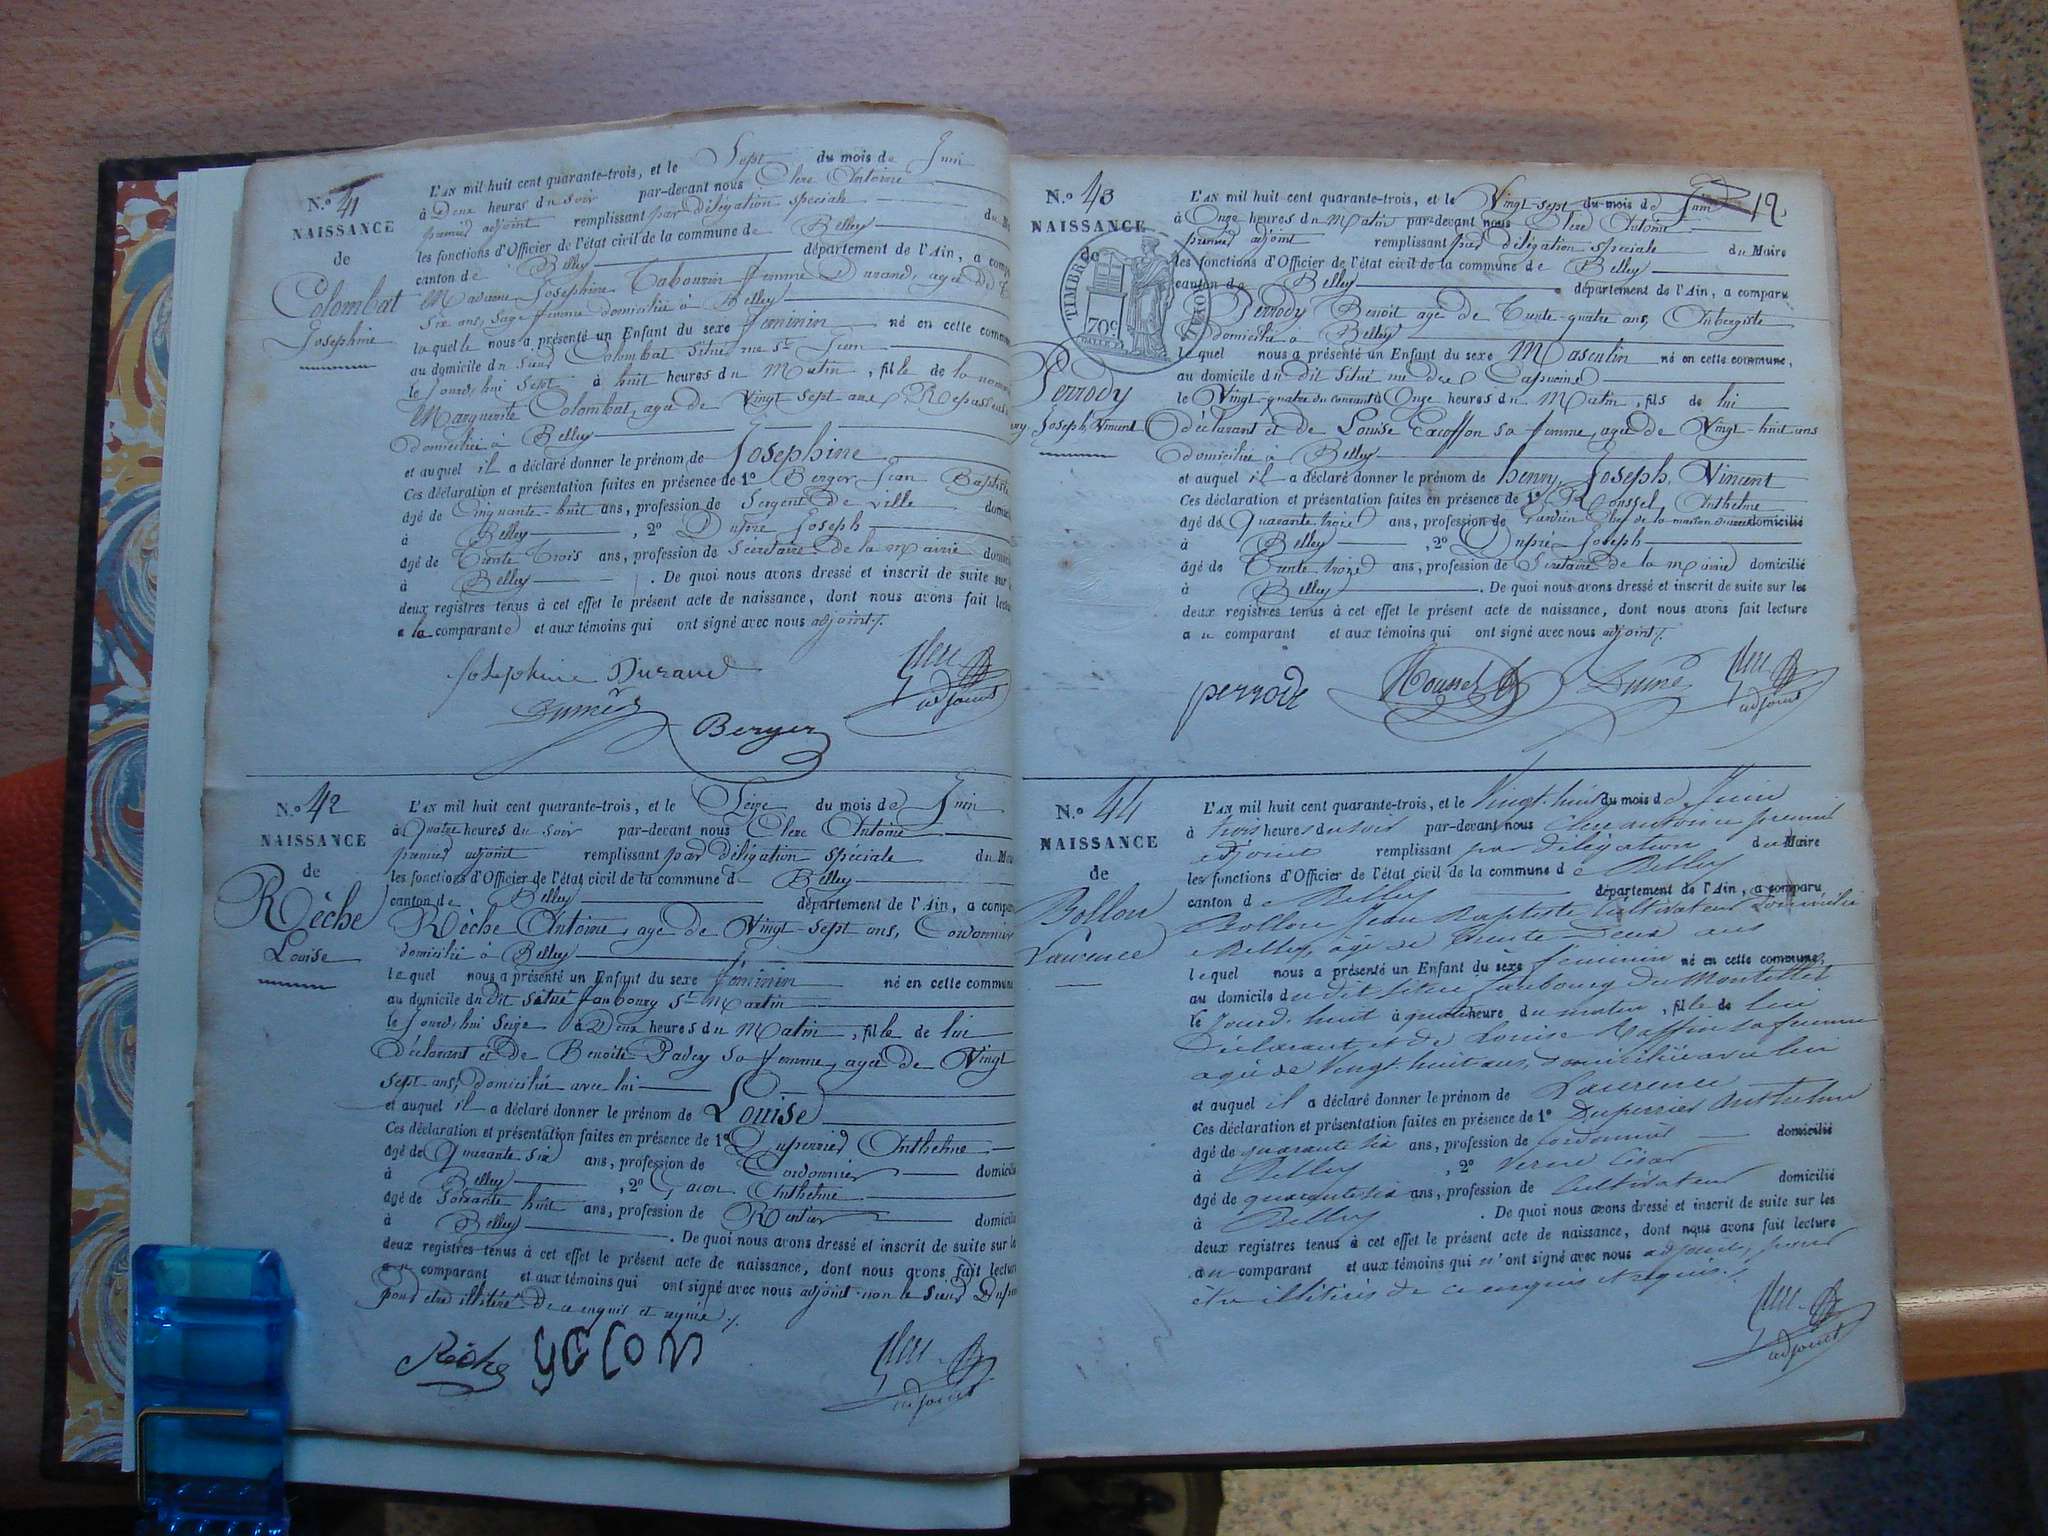 N.o 41
NAISSANCE
de
Colombat
Josephine
L'AN mil huit cent quarante-trois, et le Sept du mois de Juin
à Deux heures du Soir par-devant nous Clerc Antoine
premier adjoint remplissant par délégation spéciale du
les fonctions d'Officier de l'état civil de la commune de Belley
canton de Belley département de l'Ain, a
Madame Josephine Tabourin femme Durand, agée de
Six ans, Sage femme domiciliée à Belley
laquelle nous a présenté un Enfant du sexe feminin né en cette
au domicile du Sieur Colombat Situé rue St Jean
le Jourd'hui Sept à huit heures du Matin, fille de la
Marguerite Colombat, agée de Vingt sept ans,
domiciliée à Belley
et auquel il a déclaré donner le prénom de Josephine
Ces déclaration et présentation faites en présence de 1º Berger Jean
âgé de Cinquante-huit ans, profession de Sergent de ville
à Belley, 2º Dupré Joseph
âgé de Trente Trois ans, profession de Sécretaire de la Mairie
à Belley. De quoi nous avons dressé et inscrit de suite sur
deux registres tenus à cet effet le présent acte de naissance, dont nous avons fait
a la comparante et aux témoins qui ont signé avec nous adjoint ./.
Josephine Durand
Clerc
adjoint
Berger
N.o 42
NAISSANCE
de
Rèche
Louise
L'AN mil huit cent quarante-trois, et le Seize du mois de Juin
à Quatre heures du Soir par-devant nous Clerc Antoine
premier adjoint remplissant par délégation spéciale du
les fonctions d'Officier de l'état civil de la commune de Belley
canton de Belley département de l'Ain, a
Rèche Antoine, agé de Vingt-sept ans, Cordonnier
domicilié à Belley
lequel nous a présenté un Enfant du sexe féminin né en cette
au domicile du dit Situé faubourg St Martin
le Jourd'hui Seize à Deux heures du Matin, fille de lui
déclarant et de Benoite Padey sa femme, agée de Vingt
sept ans, domiciliée avec lui
et auquel il a déclaré donner le prénom de Louise
Ces déclaration et présentation faites en présence de 1º Duperrier Anthelme
âgé de Quarante Six ans, profession de Cordonnier
à Belley, 2º Anthelme
âgé de Soixante huit ans, profession de Rentier
à Belley. De quoi nous avons dressé et inscrit de suite sur
deux registres tenus à cet effet le présent acte de naissance, dont nous avons fait
au comparant et aux témoins qui ont signé avec nous adjoint non le Sieur
pour etre illitéré de ce enquis et requis ./.
Rèche
Clerc
adjoint
12
N.o 43
NAISSANCE
de
TIMBRE ROYAL
70c
Perrody
Joseph, Vincent
L'AN mil huit cent quarante-trois, et le Vingt-sept du mois de Juin
à Onze heures du Matin par-devant nous Clerc Antoine
premier adjoint remplissant par délégation spéciale du Maire
les fonctions d'Officier de l'état civil de la commune de Belley
canton de Belley département de l'Ain, a comparu
Perrody Benoit agé de Trente-quatre ans, Aubergiste
domicilié à Belley
lequel nous a présenté un Enfant du sexe Masculin né en cette commune,
au domicile du dit Situé rue des Capucins
le Vingt-quatre du courant à Onze heures du Matin, fils de lui
déclarant et de Louise Excoffon sa femme, agée de Vingt-huit ans
domiciliée à Belley
et auquel il a déclaré donner le prénom de henry, Joseph, Vincent
Ces déclaration et présentation faites en présence de 1º Roussel Anthelme
âgé de Quarante trois ans, profession de Gardien Chef de la maison domicilié
à Belley, 2º Dupré Joseph
âgé de Trente trois ans, profession de Secretaire de la Mairie domicilié
à Belley. De quoi nous avons dressé et inscrit de suite sur les
deux registres tenus à cet effet le présent acte de naissance, dont nous avons fait lecture
au comparant et aux témoins qui ont signé avec nous adjoint ./.
perrode Roussel Dupré Clerc
adjoint
N.o 44
NAISSANCE
de
Bollon
Laurence
L'AN mil huit cent quarante-trois, et le Vingt-huit du mois de Juin
à trois heures du soir par-devant nous Clerc antoine premier
adjoint remplissant par délégation du Maire
les fonctions d'Officier de l'état civil de la commune de Belley
canton de Belley département de l'Ain, a comparu
Bollon Jean Baptiste Cultivateur domicilié
a Belley, agé de trente-deux ans
lequel nous a présenté un Enfant du sexe feminin né en cette commune,
au domicile du dit situé faubourg du
le Jourd'huit à quatre heure du matin, fille de lui
déclarant et de Louise sa femme
agée de Vingt-huit ans, domiciliée avec lui
et auquel il a déclaré donner le prénom de Laurence
Ces déclaration et présentation faites en présence de 1º Duperrier Anthelme
âgé de quarante six ans, profession de Cordonnier domicilié
à Belley, 2º César
âgé de quarante six ans, profession de Cultivateur domicilié
à Belley. De quoi nous avons dressé et inscrit de suite sur les
deux registres tenus à cet effet le présent acte de naissance, dont nous avons fait lecture
au comparant et aux témoins qui n'ont signé avec nous adjoint, pour
être illitérés de ce enquis et requis ./.
Clerc
adjoint